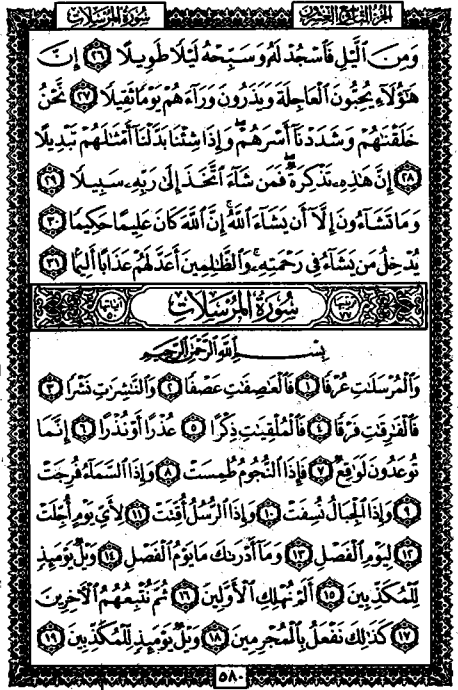 سُورَةُ المُرْسَلَاتِ
الجُزْءُ التَّاسِعُ وَالعِشْرُونَ
وَمِنَ ٱلَّيْلِ فَٱسْجُدْ لَهُۥ وَسَبِّحْهُ لَيْلًا طَوِيلًا ۝٢٦ إِنَّ
هَٰٓؤُلَآءِ يُحِبُّونَ ٱلْعَاجِلَةَ وَيَذَرُونَ وَرَآءَهُمْ يَوْمًا ثَقِيلًا ۝٢٧ نَّحْنُ
خَلَقْنَٰهُمْ وَشَدَدْنَآ أَسْرَهُمْ ۖ وَإِذَا شِئْنَا بَدَّلْنَآ أَمْثَٰلَهُمْ تَبْدِيلًا
۝٢٨ إِنَّ هَٰذِهِۦ تَذْكِرَةٌ ۖ فَمَن شَآءَ ٱتَّخَذَ إِلَىٰ رَبِّهِۦ سَبِيلًا ۝٢٩
وَمَا تَشَآءُونَ إِلَّآ أَن يَشَآءَ ٱللَّهُ ۚ إِنَّ ٱللَّهَ كَانَ عَلِيمًا حَكِيمًا ۝٣٠
يُدْخِلُ مَن يَشَآءُ فِى رَحْمَتِهِۦ ۚ وَٱلظَّٰلِمِينَ أَعَدَّ لَهُمْ عَذَابًا أَلِيمًۢا ۝٣١
ترتيبها ٧٧ سُورَةُ المُرْسَلَاتِ آياتها ٥٠
بِسْمِ ٱللَّهِ ٱلرَّحْمَٰنِ ٱلرَّحِيمِ
وَٱلْمُرْسَلَٰتِ عُرْفًا ۝١ فَٱلْعَٰصِفَٰتِ عَصْفًا ۝٢ وَٱلنَّٰشِرَٰتِ نَشْرًا ۝٣
فَٱلْفَٰرِقَٰتِ فَرْقًا ۝٤ فَٱلْمُلْقِيَٰتِ ذِكْرًا ۝٥ عُذْرًا أَوْ نُذْرًا ۝٦ إِنَّمَا
تُوعَدُونَ لَوَٰقِعٌ ۝٧ فَإِذَا ٱلنُّجُومُ طُمِسَتْ ۝٨ وَإِذَا ٱلسَّمَآءُ فُرِجَتْ
۝٩ وَإِذَا ٱلْجِبَالُ نُسِفَتْ ۝١٠ وَإِذَا ٱلرُّسُلُ أُقِّتَتْ ۝١١ لِأَىِّ يَوْمٍ أُجِّلَتْ
۝١٢ لِيَوْمِ ٱلْفَصْلِ ۝١٣ وَمَآ أَدْرَىٰكَ مَا يَوْمُ ٱلْفَصْلِ ۝١٤ وَيْلٌ يَوْمَئِذٍ
لِّلْمُكَذِّبِينَ ۝١٥ أَلَمْ نُهْلِكِ ٱلْأَوَّلِينَ ۝١٦ ثُمَّ نُتْبِعُهُمُ ٱلْءَاخِرِينَ
۝١٧ كَذَٰلِكَ نَفْعَلُ بِٱلْمُجْرِمِينَ ۝١٨ وَيْلٌ يَوْمَئِذٍ لِّلْمُكَذِّبِينَ ۝١٩
٥٨٠